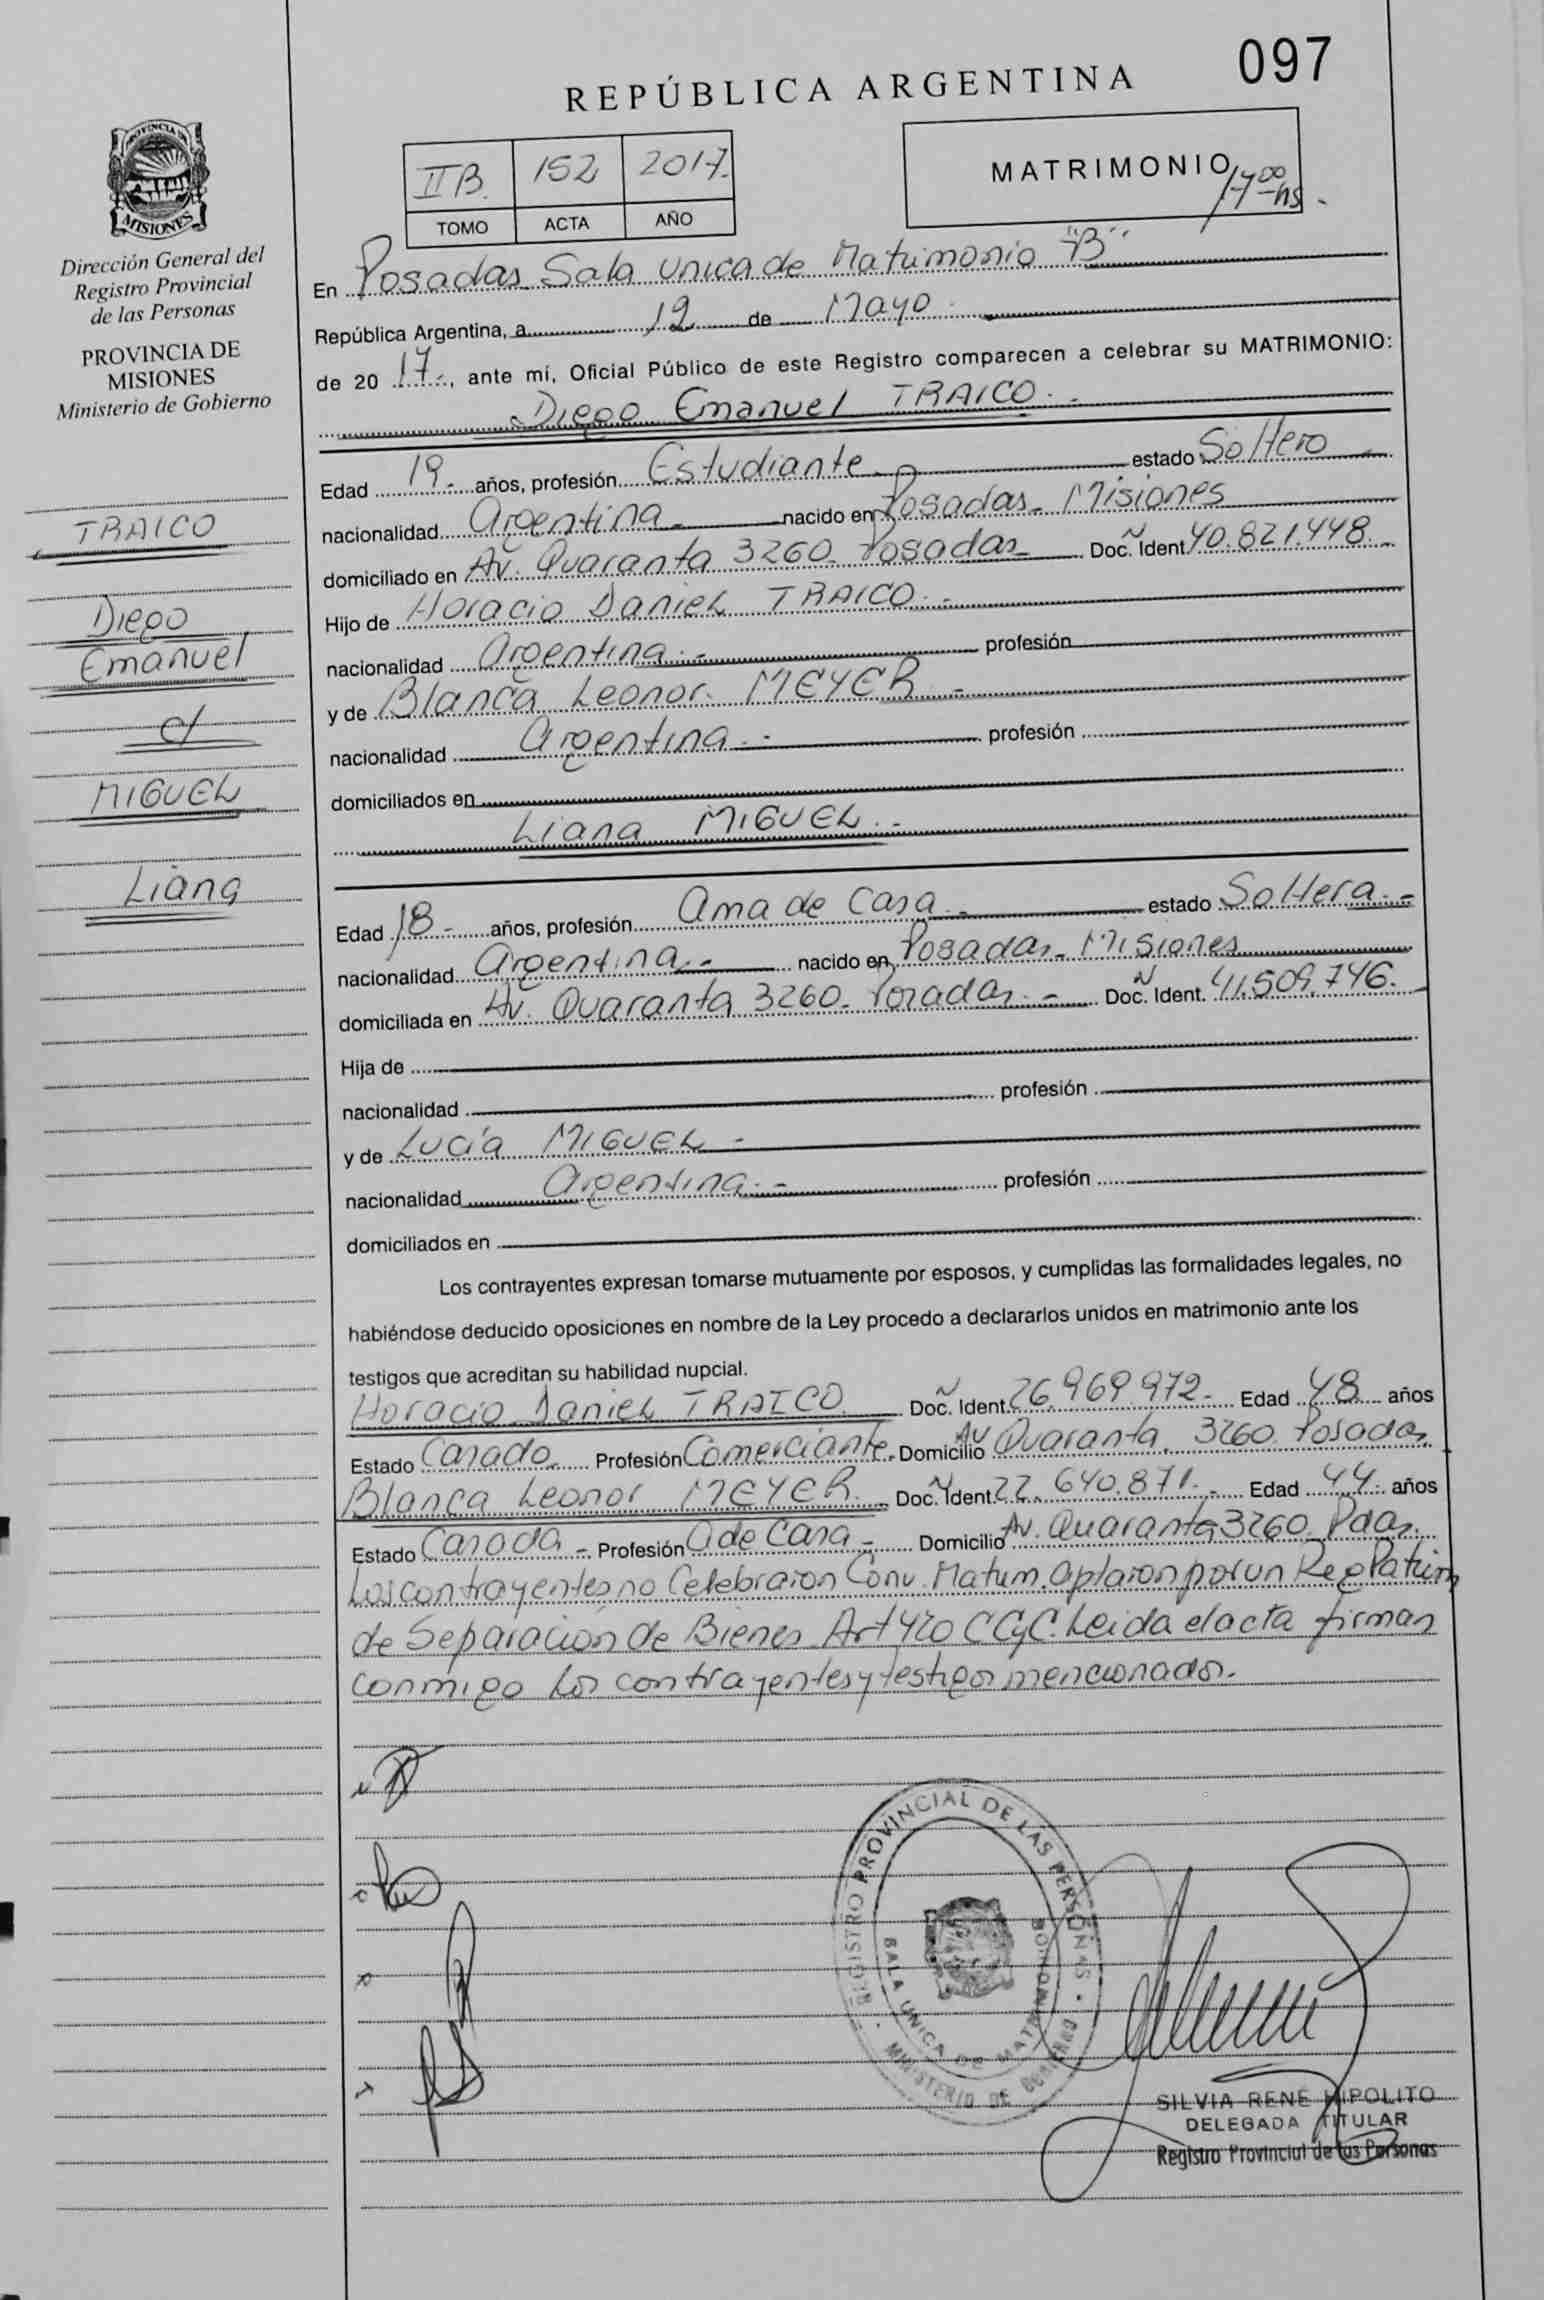 REPÚBLICA ARGENTINA
097
IIB. 152 2017.
TOMO ACTA AÑO
MATRIMONIO
17 00 hs.
PROVINCIA DE
MISIONES
Dirección General del
Registro Provincial
de las Personas
PROVINCIA DE
MISIONES
Ministerio de Gobierno
TRAICO
Diego
Emanuel
c/
MIGUEL
Liana
En Posadas Sala unica de Matrimonio "B"
República Argentina, a 12 de Mayo
de 20 17, ante mí, Oficial Público de este Registro comparecen a celebrar su MATRIMONIO:
Diego Emanuel TRAICO.-
Edad 19.- años, profesión Estudiante estado Soltero
nacionalidad Argentina nacido en Posadas- Misiones
domiciliado en Av. Quaranta 3260. Posadas Doc. Ident 40.821.448.-
Hijo de Horacio Daniel TRAICO.-
nacionalidad Argentina.- profesión
y de Blanca Leonor MEYER.-
nacionalidad Argentina.- profesión
domiciliados en
Liana MIGUEL.-
Edad 18- años, profesión Ama de Casa estado Soltera.-
nacionalidad Argentina.- nacido en Posadas- Misiones
domiciliada en Av. Quaranta 3260- Posadas.- Doc. Ident. 41.509.746.
Hija de
nacionalidad profesión
y de Lucía MIGUEL-
nacionalidad Argentina.- profesión
domiciliados en
Los contrayentes expresan tomarse mutuamente por esposos, y cumplidas las formalidades legales, no
habiéndose deducido oposiciones en nombre de la Ley procedo a declararlos unidos en matrimonio ante los
testigos que acreditan su habilidad nupcial.
Horacio Daniel TRAICO Doc. Ident. 26.969.972- Edad 48 años
Estado Casado Profesión Comerciante Domicilio Av Quaranta 3260 Posadas
Blanca Leonor MEYER Doc. Ident. 22.640.871.- Edad 44 años
Estado Casada- Profesión A de Casa- Domicilio Av. Quaranta 3260 Pdas.
Los contrayentes no Celebraron Conv. Matrim. optaron por un Reg Patrim
de Separación de Bienes Art 420 CCyC. Leida el acta firman
conmigo los contrayentes y testigos mencionados.-
REGISTRO PROVINCIAL DE LAS PERSONAS
SALA UNICA DE MATRIMONIO B
MINISTERIO DE GOBIERNO
SILVIA RENE HIPOLITO
DELEGADA TITULAR
Registro Provincial de las Personas